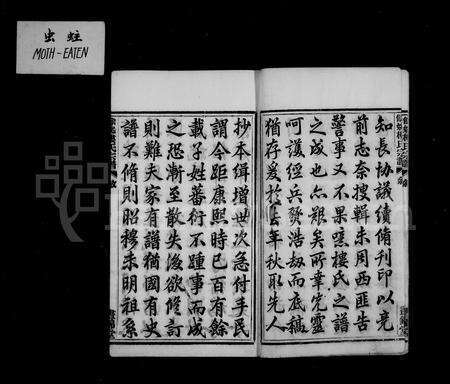 虫蛀
MOTH-EATEN
知長協議續脩刊印以竟
前志奈搜輯未周西匪告
警事又不果噫樓氏之譜
之成也亦艱矣所幸先靈
呵護經兵燹浩劫而底稿
猶存爰於去年秋取先人
抄本緝增世次急付手民
謂今距康熙時已百有餘
載子姓蕃衍不踵事而成
之恐漸至散失後欲修訂
則難夫家有譜猶國有史
譜不脩則昭穆未明祖系